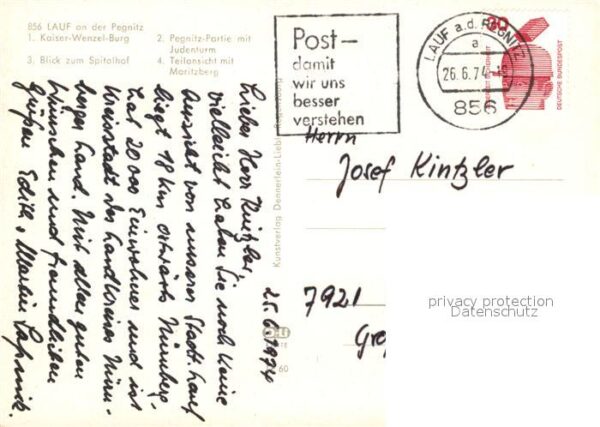 856 LAUF an der Pegnitz
1. Kaiser-Wenzel-Burg 2. Pegnitz-Partie mit Judenturm
3. Blick zum Spitalhof 4. Teilansicht mit Moritzberg
Post-
damit
wir uns
besser
verstehen
LAUF a.d. PEGNITZ
a
26.6.74
856
30
DEUTSCHE BUNDESPOST
Herrn
Josef Kintzler
7921
25.6.1974
Lieber Herr Kintzler,
vielleicht haben Sie noch keine
Aussicht von unserer Stadt. Lauf
liegt 18 km ostwärts Nürnberg,
hat 20 000 Einwohner und ist
Kreisstadt des Landkreises Nürn-
berger Land. Mit allen guten
Wünschen und freundlichen
Grüßen Edith, Martin
Kunstverlag Dennerlein-Liebl
60
privacy protection
Datenschutz